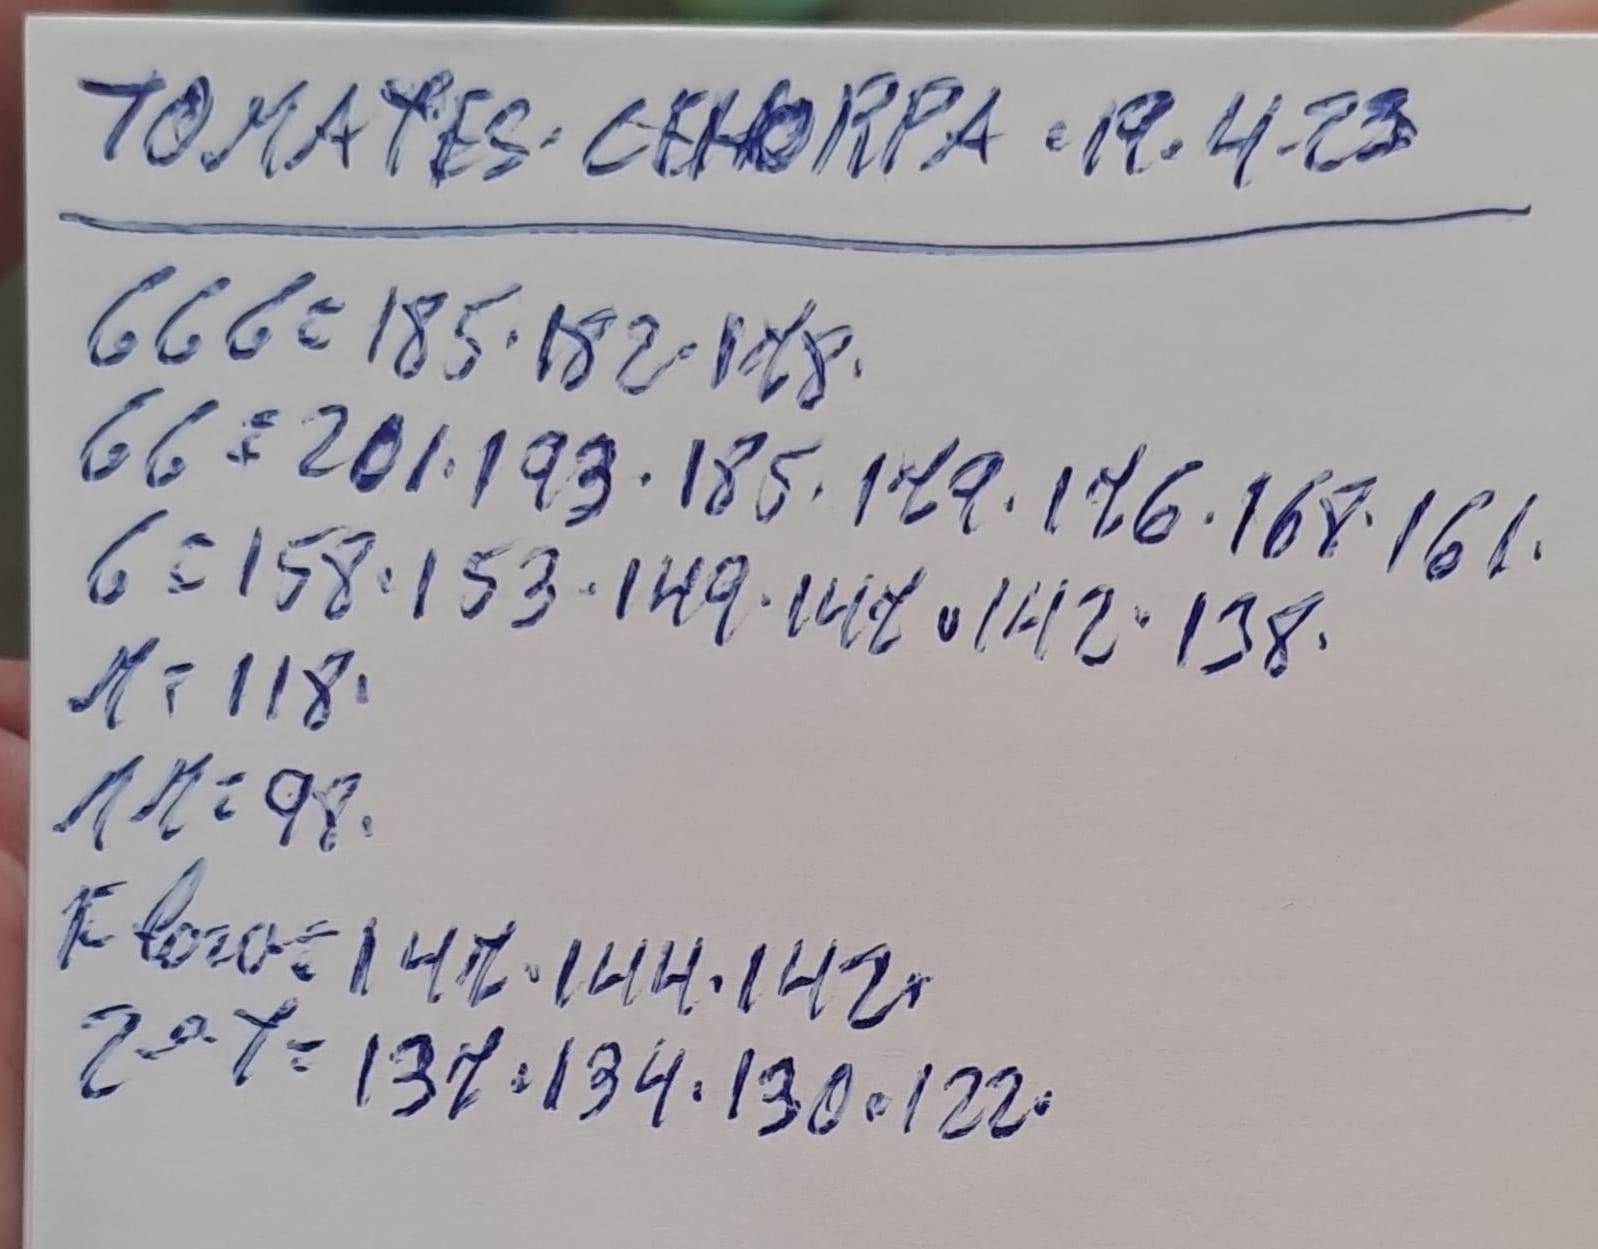 TOMATES. CEHORPA . 19. 4-23
GGG = 185. 182. 178.
GG = 201. 193. 185. 179. 176. 168. 161.
G = 158. 153. 149. 147. 142. 138.
M = 118.
MM = 98.
= 147. 144. 142.
2ª T = 137. 134. 130. 122.